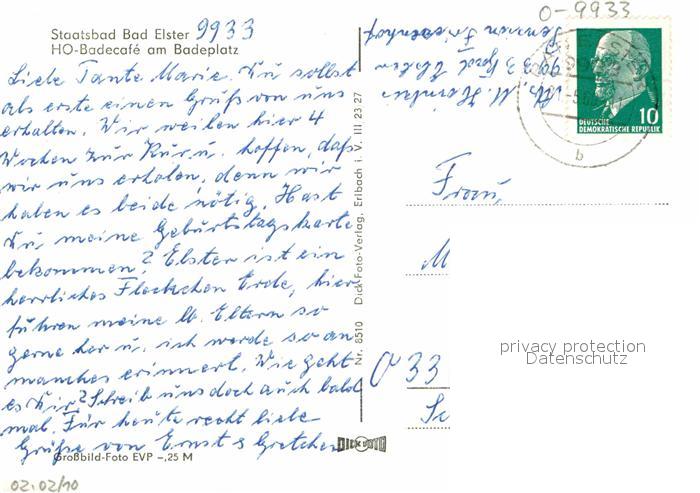 Staatsbad Bad Elster 9933
HO-Badecafé am Badeplatz
Liebe Tante Marie. Du sollst
als erste einen Gruß von uns
erhalten. Wir weilen hier 4
Wochen zur Kur u. hoffen, daß
wir uns erholen, denn wir
haben es beide nötig. Hast
Du meine Geburtstagskarte
bekommen? Elster ist ein
herrliches Fleckchen Erde, hier
führen meine lb. Eltern so
gerne her u. ich werde so an
manches erinnert. Wie geht
es Dir? Schreib uns doch auch bald
mal. Für heute recht liebe
Grüße von Ernst & Gretchen
Großbild-Foto EVP -,25 M
02.02/10
Nr. 8510 Dick-Foto-Verlag, Erlbach i. V. III 23 27
DICK FOTO
0-9933
Pension
9933 Bad Elster
10
DEUTSCHE
DEMOKRATISCHE REPUBLIK
b
Frau
M
0 33
privacy protection
Datenschutz